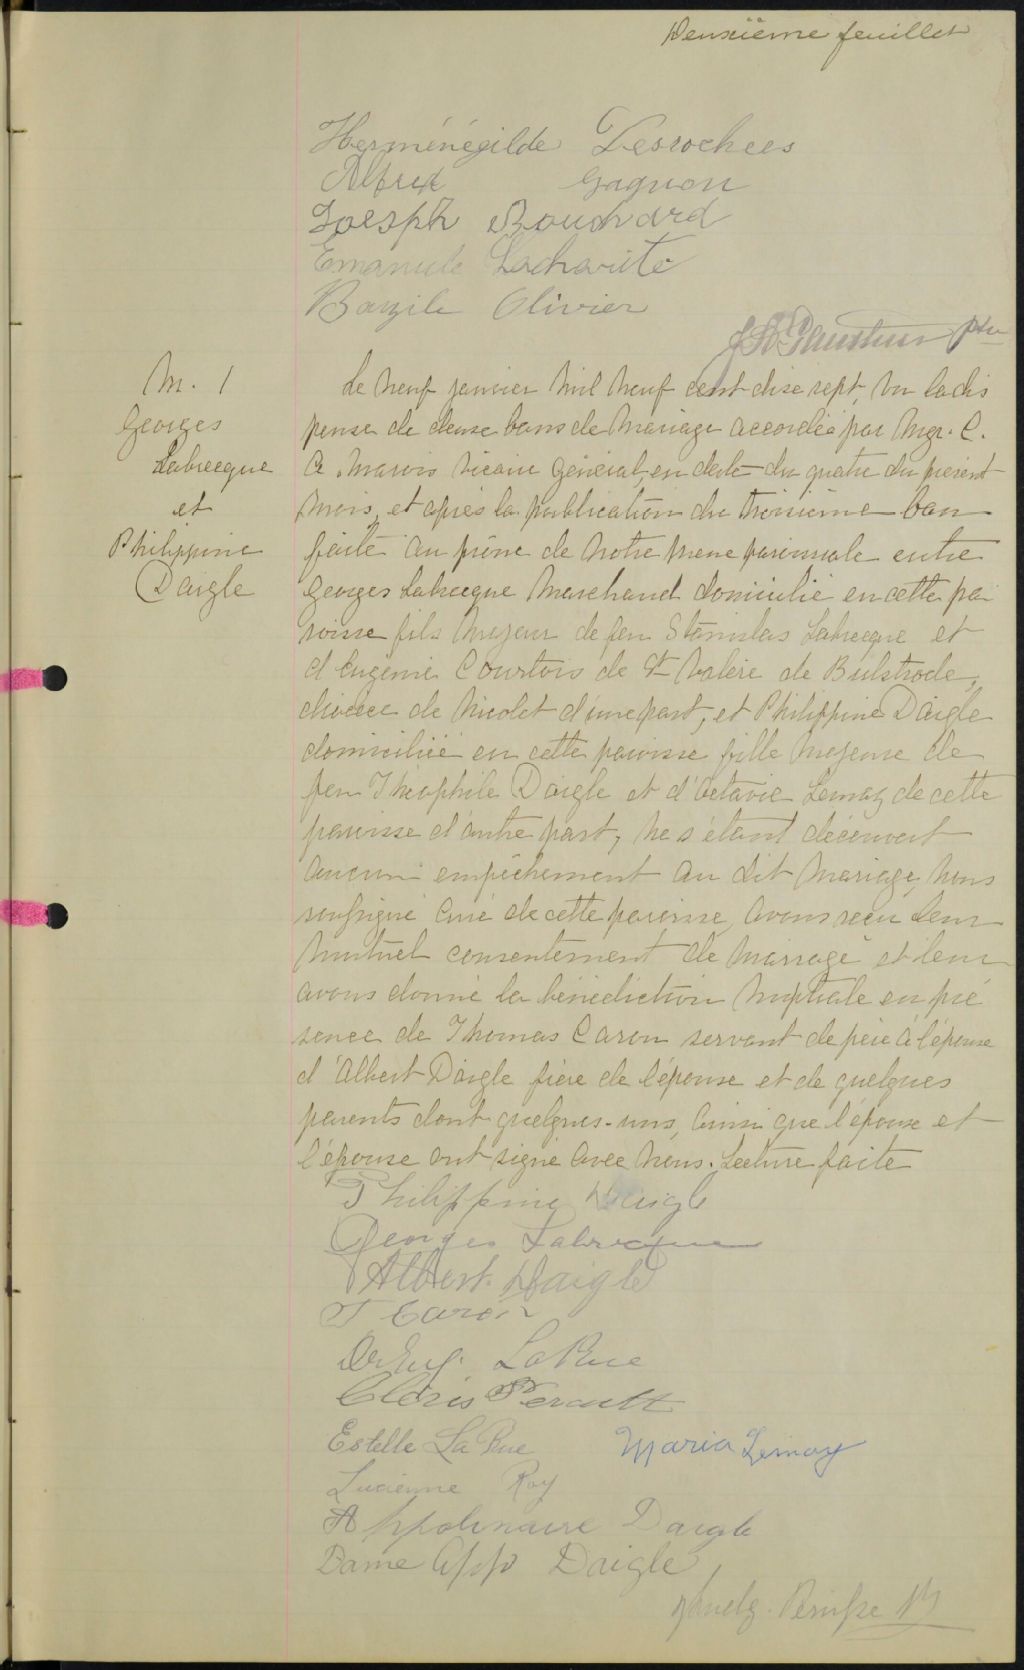 Deuxième feuillet
Herménégilde Desrochees
Alfred Gagnon
Joesph Bouchard
Emanuele Lacharite
Bazile Olivier
ptre
M. 1
Georges
Labrecque
et
Philippine
Daigle
Le neuf janvier mil neuf cent dix sept, vu la dis
pense de deux bans de mariage accordée par Mgr. C.
A. Marois vicaire général, en date du quatre du présent
mois, et après la publication du troisième ban
faite au prône de notre messe paroissiale entre
Georges Labrecque marchand domicilié en cette pa
roisse fils majeur de feu Stanislas Labrecque et
d'Eugénie Courtois de St Valère de Bulstrode,
diocèse de Nicolet d'une part, et Philippine Daigle
domiciliée en cette paroisse fille majeure de
feu Théophile Daigle et d'Octavie Lemay de cette
paroisse d'autre part, ne s'étant découvert
aucun empêchement au dit mariage, nous
soussigné curé de cette paroisse, avons reçu leur
mutuel consentement de mariage et leur
avons donné la bénédiction nuptiale en pré
sence de Thomas Caron servant de père à l'épouse
d'Albert Daigle frère de l'épouse et de quelques
parents dont quelques-uns, ainsi que l'époux et
l'épouse ont signé avec nous. Lecture faite
Philippine Daigle
Georges Labrecque
Albert Daigle
T Caron
Dr Eug. LaRue
Cloris Perault
Estelle LaRue Maria Lemay
Lucienne Roy
Appolinaire Daigle
Dame App Daigle